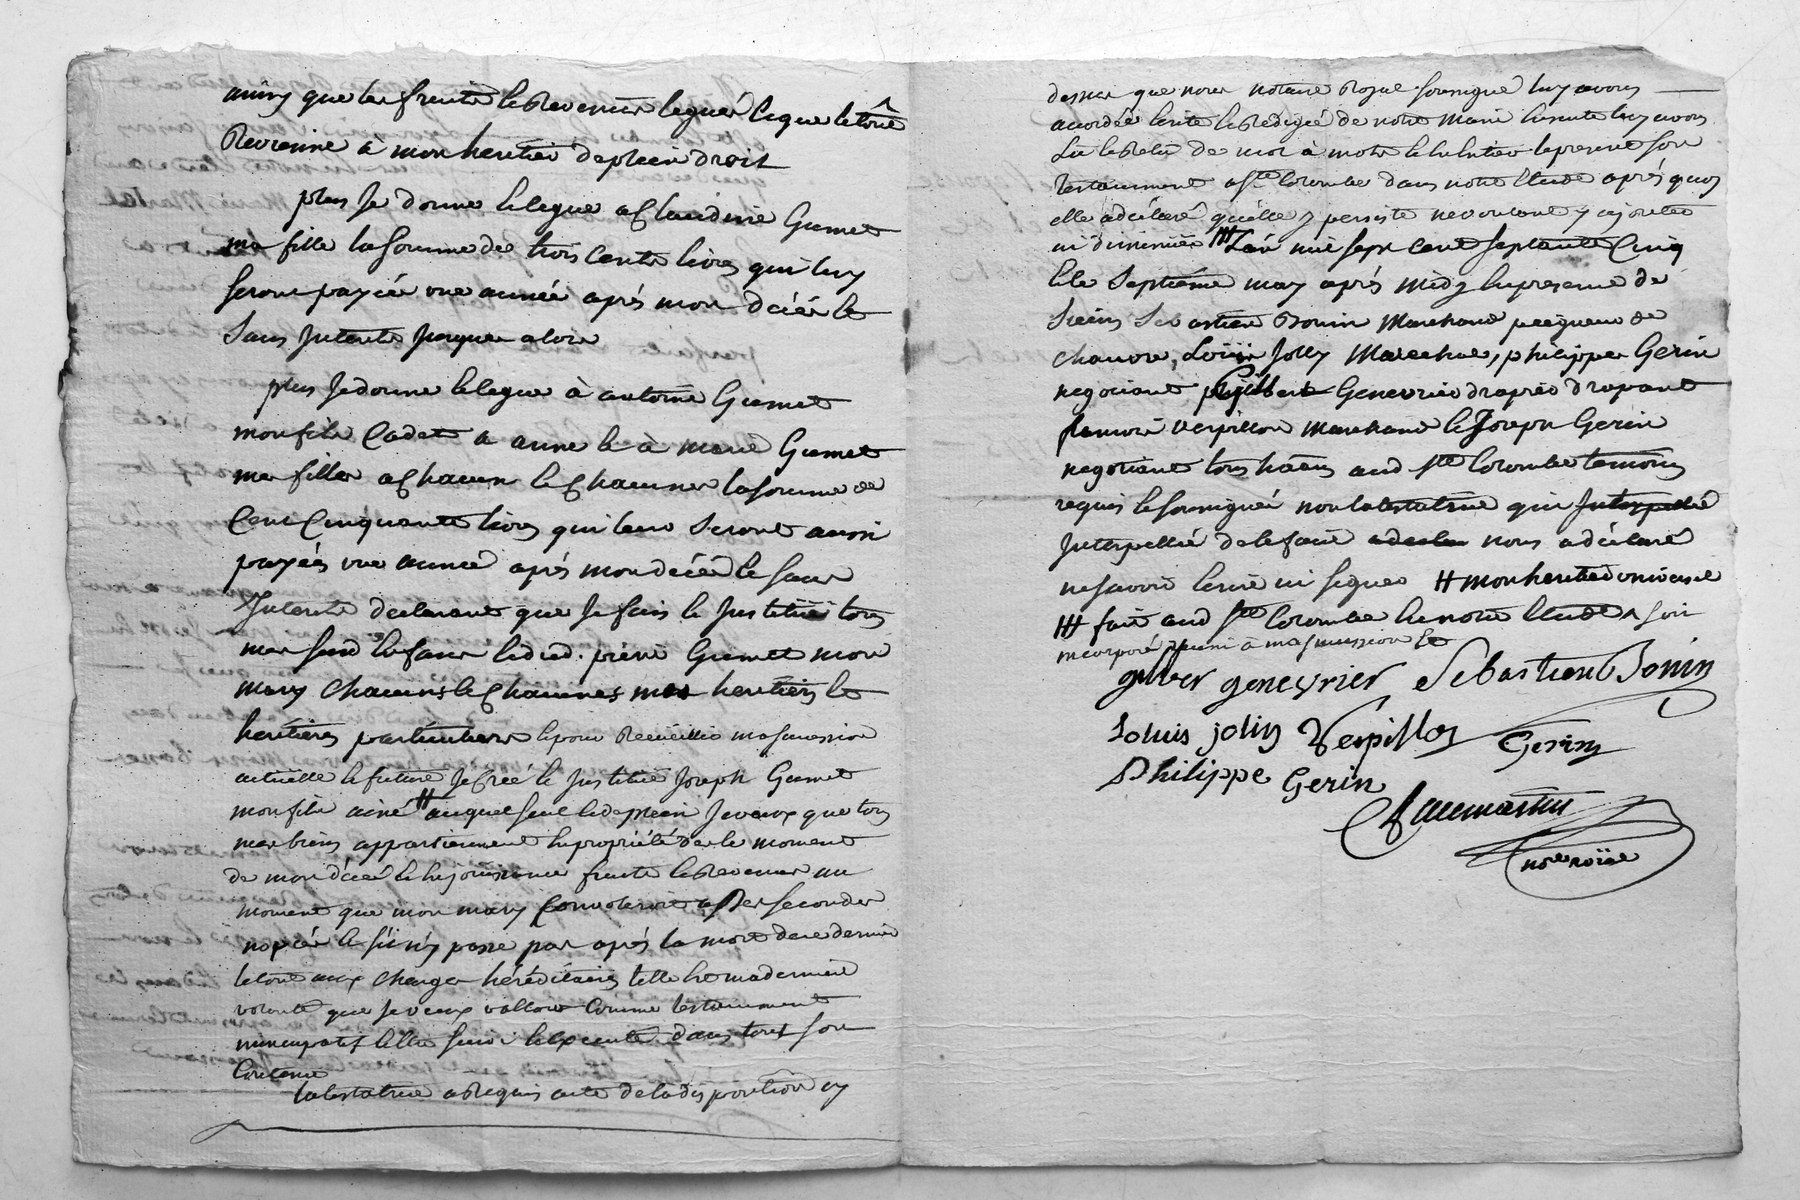 ainsy que les fruits & revenus legués & que le tout
Revienne à mon heritier de plein droit
plus Je donne & legue a Claudine Gumet
ma fille la somme de trois cents livres qui luy
seront payée une année après mon décés &
sans Interets Jusques alors
plus Je donne & legue à antoine Gumet
mon fils Cadet a anne & à marie Gumet
mes filles a Chacun & Chacunes la somme de
Cent Cinquante livres qui leur seront aussi
payées une année après mon décéd & sans
Interets declarant que Je fais & Institüe tous
mes susd Enfans & led. pierre Gumet mon
mary Chacuns & Chacunes mes heritiers &
heritières particuliers & pour Recueillir ma succession
actuelle & future Je Créé & Institue Joseph Gumet
mon fils ainé # auquel seul & de plein Je veux que tous
mes biens appartiennent En propriété des le moment
de mon décés & En joüissance fruits & Revenus au
moment que mon mary Convoleroit a des secondes
nopces & s'il n'y passe pas après la mort de ce dernier
le tout aux Charges héréditaires telle Est ma derniere
volonté que Je veux valloir Comme testament
nuncupatif & Etre suivi & Exécuté dans tout son
Contenu
la testatrice a Requis acte de la disposition cy
dessus que nous notaire Royal soussigné luy avons
accordée Ecrite & Redigée de notre main Ensuite luy avons
Lu & Relu de mot à mot & En Entier le present son
testament a Ste Colombe dans notre Etude après quoy
elle a déclaré qu'elle y persiste ne voulant y ajouter
ni diminuer ### L'an mil sept cent septante Cinq
& le Septiéme may après Midy En presence de
Sieurs Sebastien Bonin Marchand peigneur de
chanvre, Loüis Jolly Marechal, philippe Gerin
negociant Gilbert Genevrier drapier drapant
verpillon Marchand & Joseph Gerin
negociant tous h[ab]ans aud Ste Colombe temoins
requis & soussignés non la testatrice qui
Interpellée de le faire nous a déclaré
ne savoir Ecrire ni signer # mon heritier universel
### fait aud Ste Colombe En notre Etude ^ soit
incorporé reuni à ma succession &
gilber genevrier Sebastien Bonin
Louis joliy Verpillon Gerin
Philippe Gerin
not^re roïal